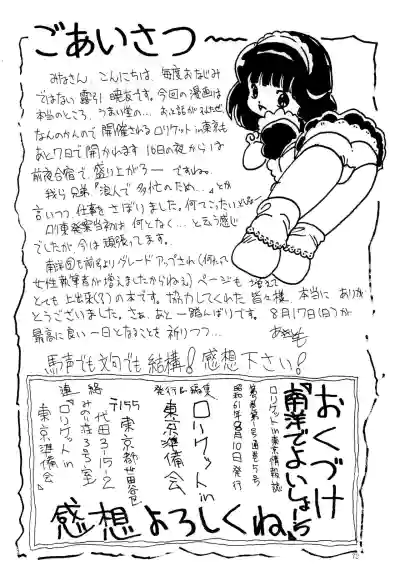 ごあいさつ
みなさん、こんにちは、毎度おなじみ
ではない霧引 暁友です。今回の漫画は
本当のところ、うまい堂の…
なんのかんので開催されるロリケット in 東京も
あと7日で開かれます 16日の夜からは
前夜合宿で、盛り上がろーですね。
我ら兄弟「浪人で多忙のため…」とか
言いつつ仕事をさぼりました。何て
ロリ東発案当初は何となく…と云う感じ
でしたが、今は頑張ってます。
南洋も前号よりグレードアップされ(何れ
女性執筆者が増えましたからねぇ)ページも増えて
とても上出来(?)の本です。協力してくれた皆々様、本当にありが
とうございました。さぁ、あと一踏んばりです。8月17日(日)が
最高に良い一日となることを祈りつつ…
罵声でも文句でも結構!感想下さい!
おくづけ
『南洋でよいしょ!
ロリケット in 東京情報誌
昭和61年8月10日発行
発行&編集
ロリケット in
東京準備会
〒155
東京都世田谷区
代田3-15-2
みのり荘3号室
連絡
『ロリケット in
東京準備会』
感想よろしくね